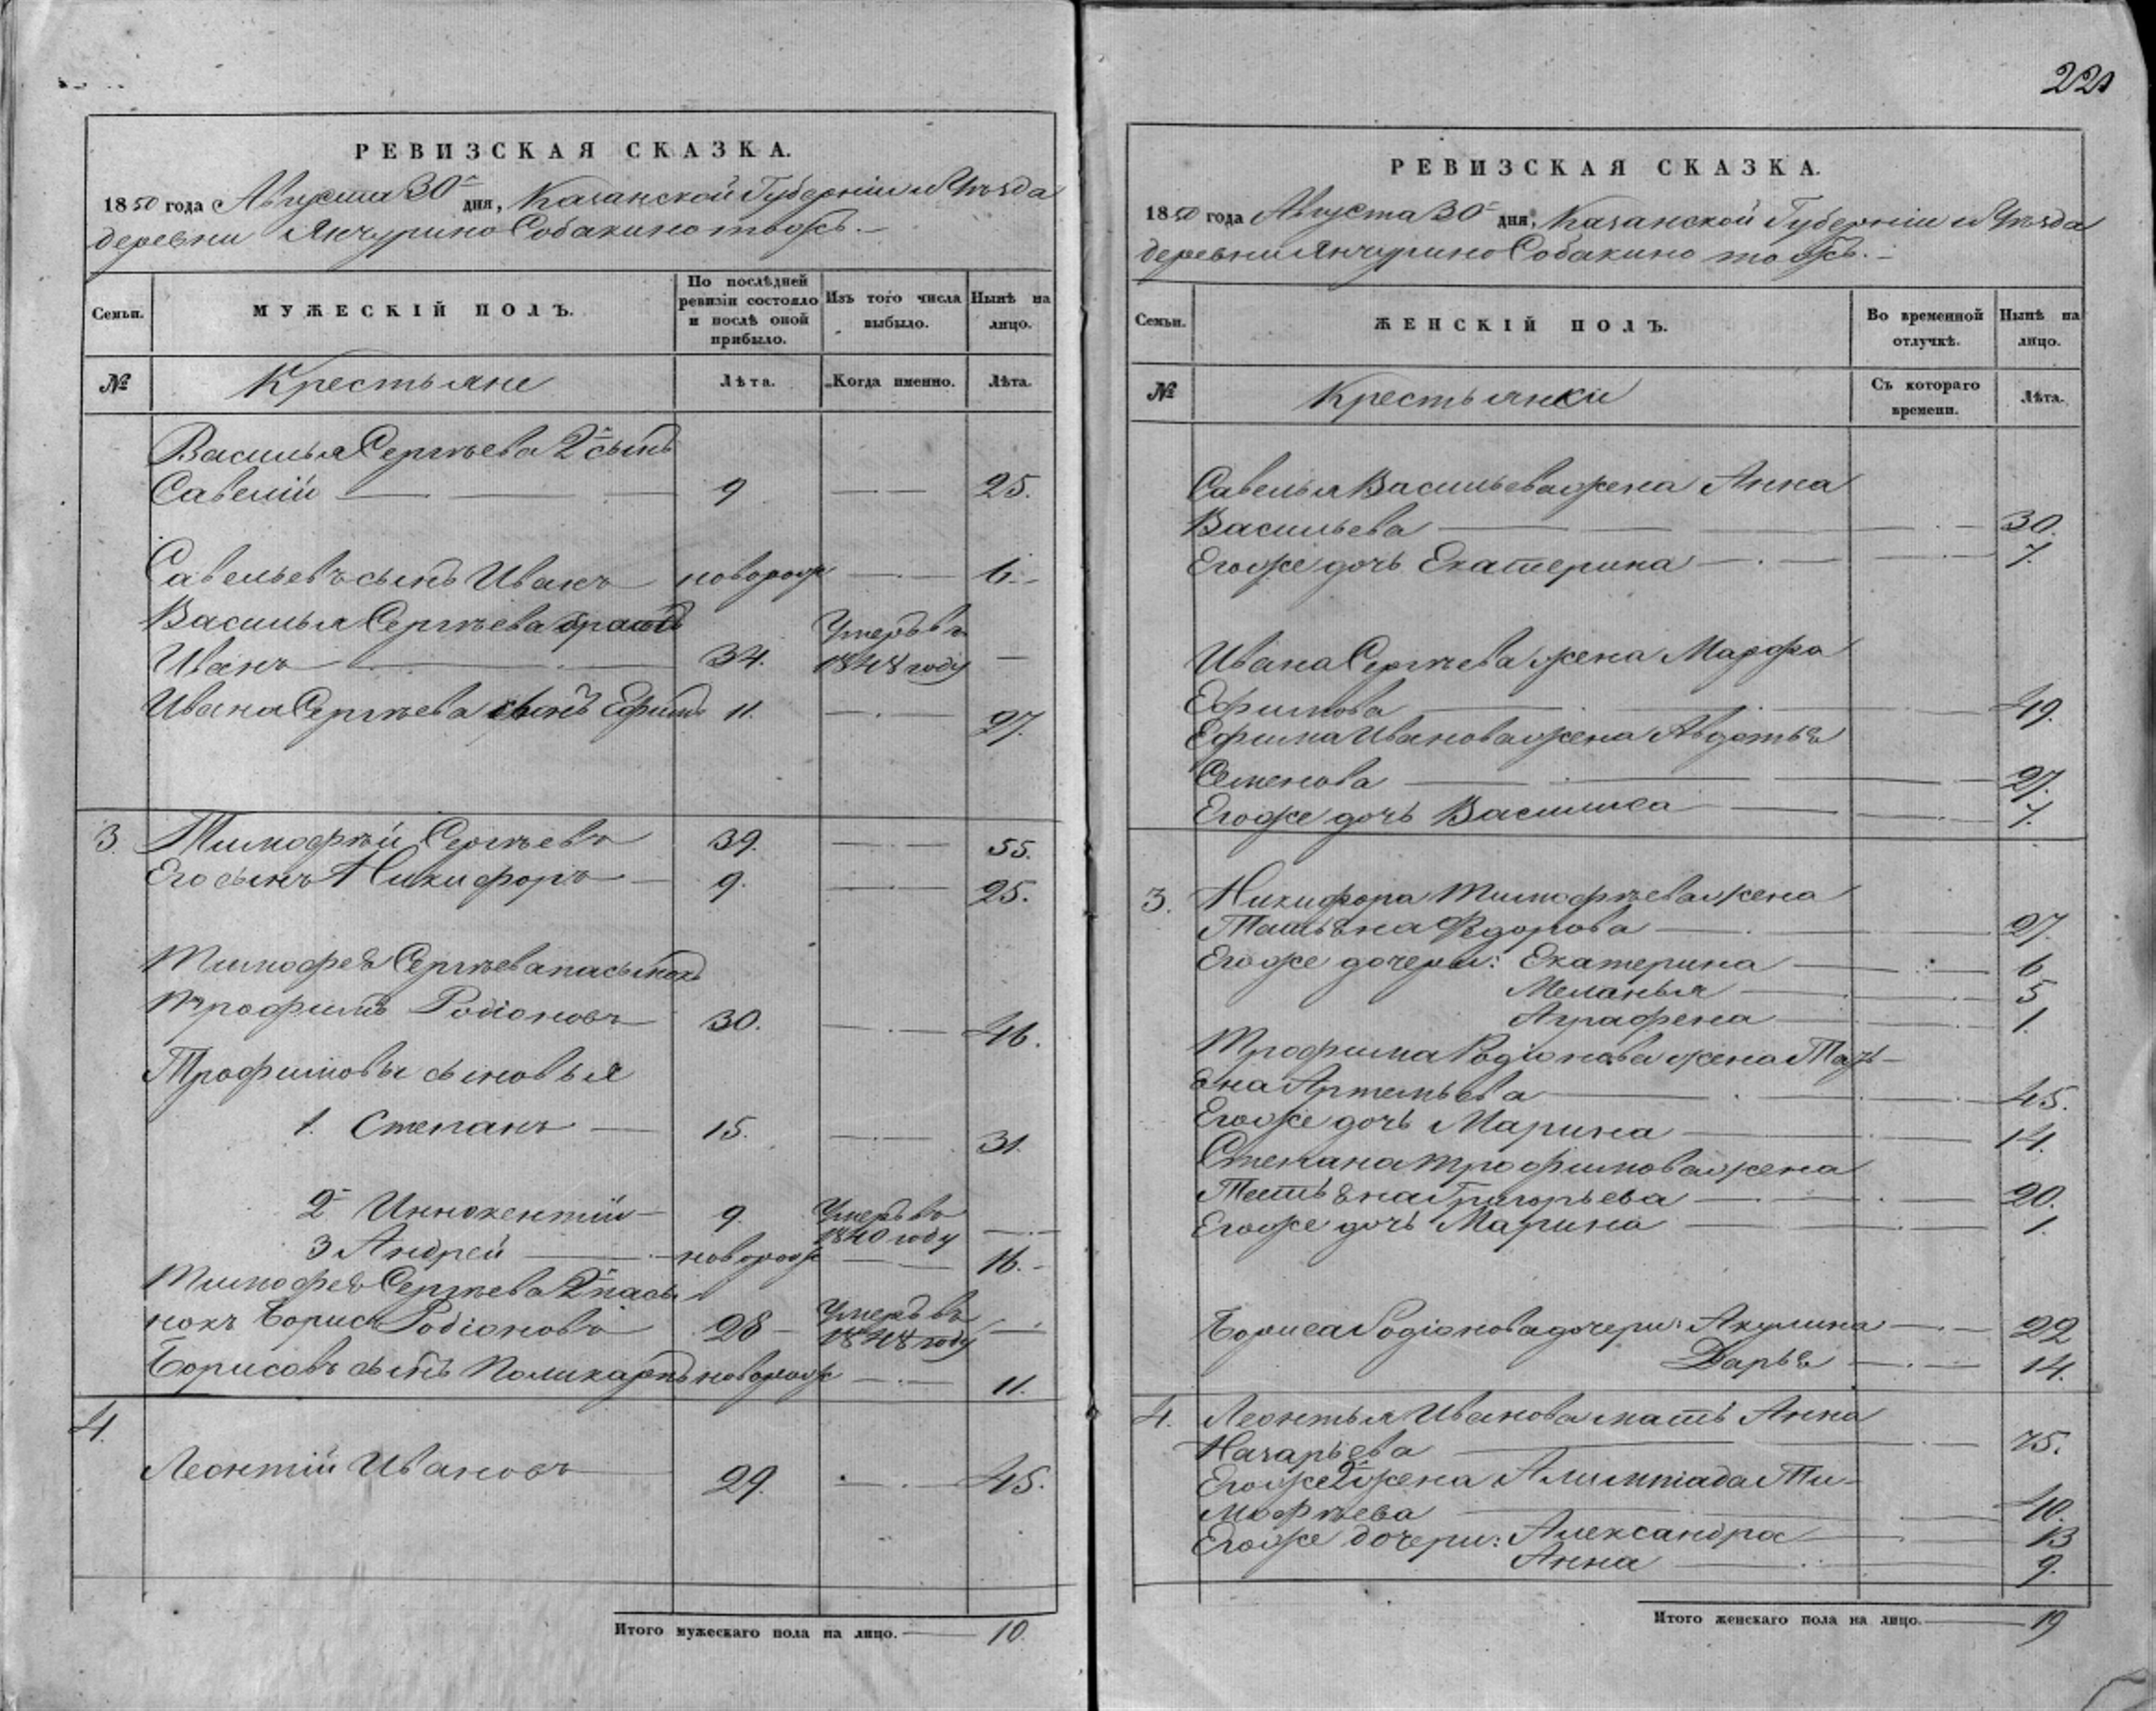 РЕВИЗСКАЯ СКАЗКА.
1850 года Августа 30 дня, Казанской Губерніи и Уѣзда
деревни Янчурино Собакино тожъ.
Семьи.
МУЖЕСКІЙ ПОЛЪ.
По послѣдней ревизіи состояло и послѣ оной прибыло.
Изъ того числа выбыло.
Нынѣ на лицо.
№ Крестьяне Лѣта. Когда именно. Лѣта.
Василья Сергѣева 2й сынъ
Савелій — 9 — 25.
Савельевъ сынъ Иванъ новорож — 6.
Василья Сергѣева братъ Умеръ въ
Иванъ — 34. 1848 году —
Ивана Сергѣева сынъ Ефимъ 11. — 27.
3. Тимофѣй Сергѣевъ 39. — 55.
Его сынъ Никифоръ — 9. — 25.
Тимофея Сергѣева пасынокъ
Трофимъ Родіоновъ 30. — 46.
Трофимовы сыновья
1. Степанъ — 15. — 31.
2й Иннокентій — 9. Умеръ въ 1840 году —
3 Андрей — новорож — 16.
Тимофея Сергѣева 2й пасы
нокъ Борисъ Родіоновъ 28 — Умеръ въ 1848 году —
Борисовъ сынъ Поликарпъ новорож — 11.
4.
Леонтій Ивановъ 29. — 45.
Итого мужескаго пола на лицо. — 10.
221
РЕВИЗСКАЯ СКАЗКА.
1850 года Августа 30 дня, Казанской Губерніи и Уѣзда
деревни Янчурино Собакино тожъ.
Семьи.
ЖЕНСКІЙ ПОЛЪ.
Во временной отлучкѣ.
Нынѣ на лицо.
№ Крестьянки Съ котораго времени. Лѣта.
Савелья Васильева жена Анна
Васильева — 30.
Его же дочь Екатерина — 7.
Ивана Сергѣева жена Марфа
Ефимова — 49.
Ефима Иванова жена Авдотья
Семенова — 27.
Его же дочь Василиса — 7.
3. Никифора Тимофѣева жена
Татьяна Федорова — 27.
Его же дочери: Екатерина — 6
Меланья — 5
Аграфена — 1.
Трофима Родіонова жена Тать-
яна Артемьева — 45.
Его же дочь Марина — 14.
Степана Трофимова жена
Татьяна Григорьева — 20.
Его же дочь Марина — 1.
Бориса Родіонова дочери: Акулина — 22
Дарья — 14.
4. Леонтья Иванова мать Анна
Назарьева — 75.
Его же 2я жена Алимпіада Ти-
мофѣева — 40.
Его же дочери: Александра — 13
Анна — 9.
Итого женскаго пола на лицо. — 19